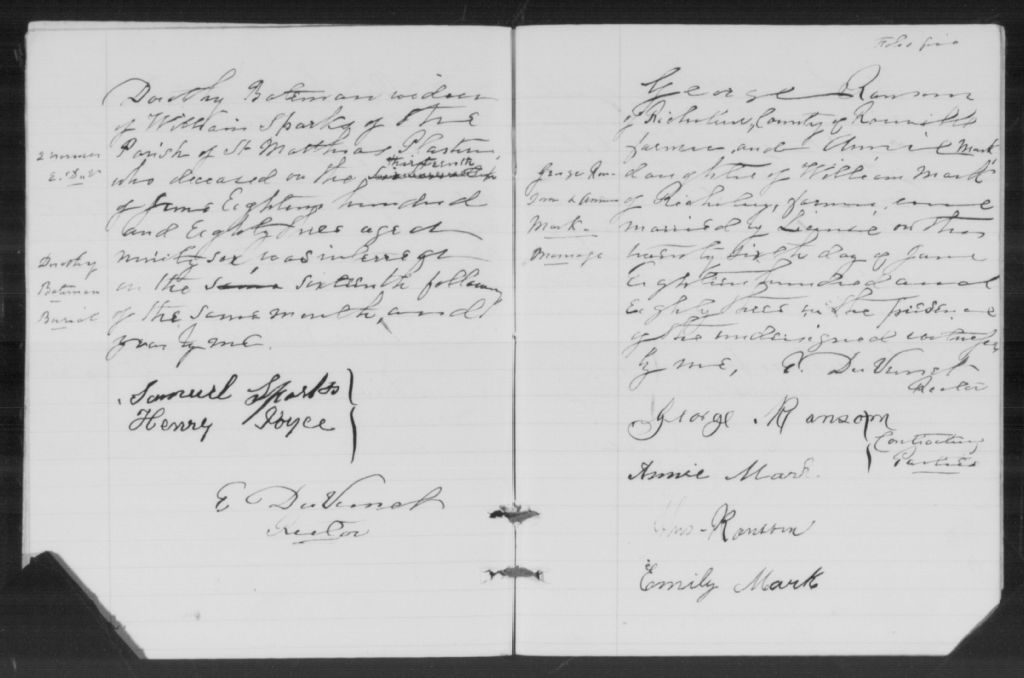 Dorothy
Bateman
Burial
Dorothy Bateman widow
of William Sparks of the
Parish of St Matthias
who deceased on the thirteenth
of June Eighteen hundred
and Eighty three aged
ninety six was interred
on the same sixteenth following
of the same month, and
year by me.
Samuel Sparks
Henry Joyce
E DuVernet
Rector
Folio five
George Ran-
som & Annie
Mark-
Marriage
George Ransom
of Richelieu, County of Rouville
farmer, and Annie Mark
daughter of William Mark
of Richelieu, farmer, were
married by License on this
twenty Sixth day of June
Eighteen hundred and
Eighty three in the presence
of the undersigned witnesses
by me, E. DuVernet
Rector
George Ransom
Contracting
Parties
Annie Mark
Ransom
Emily Mark